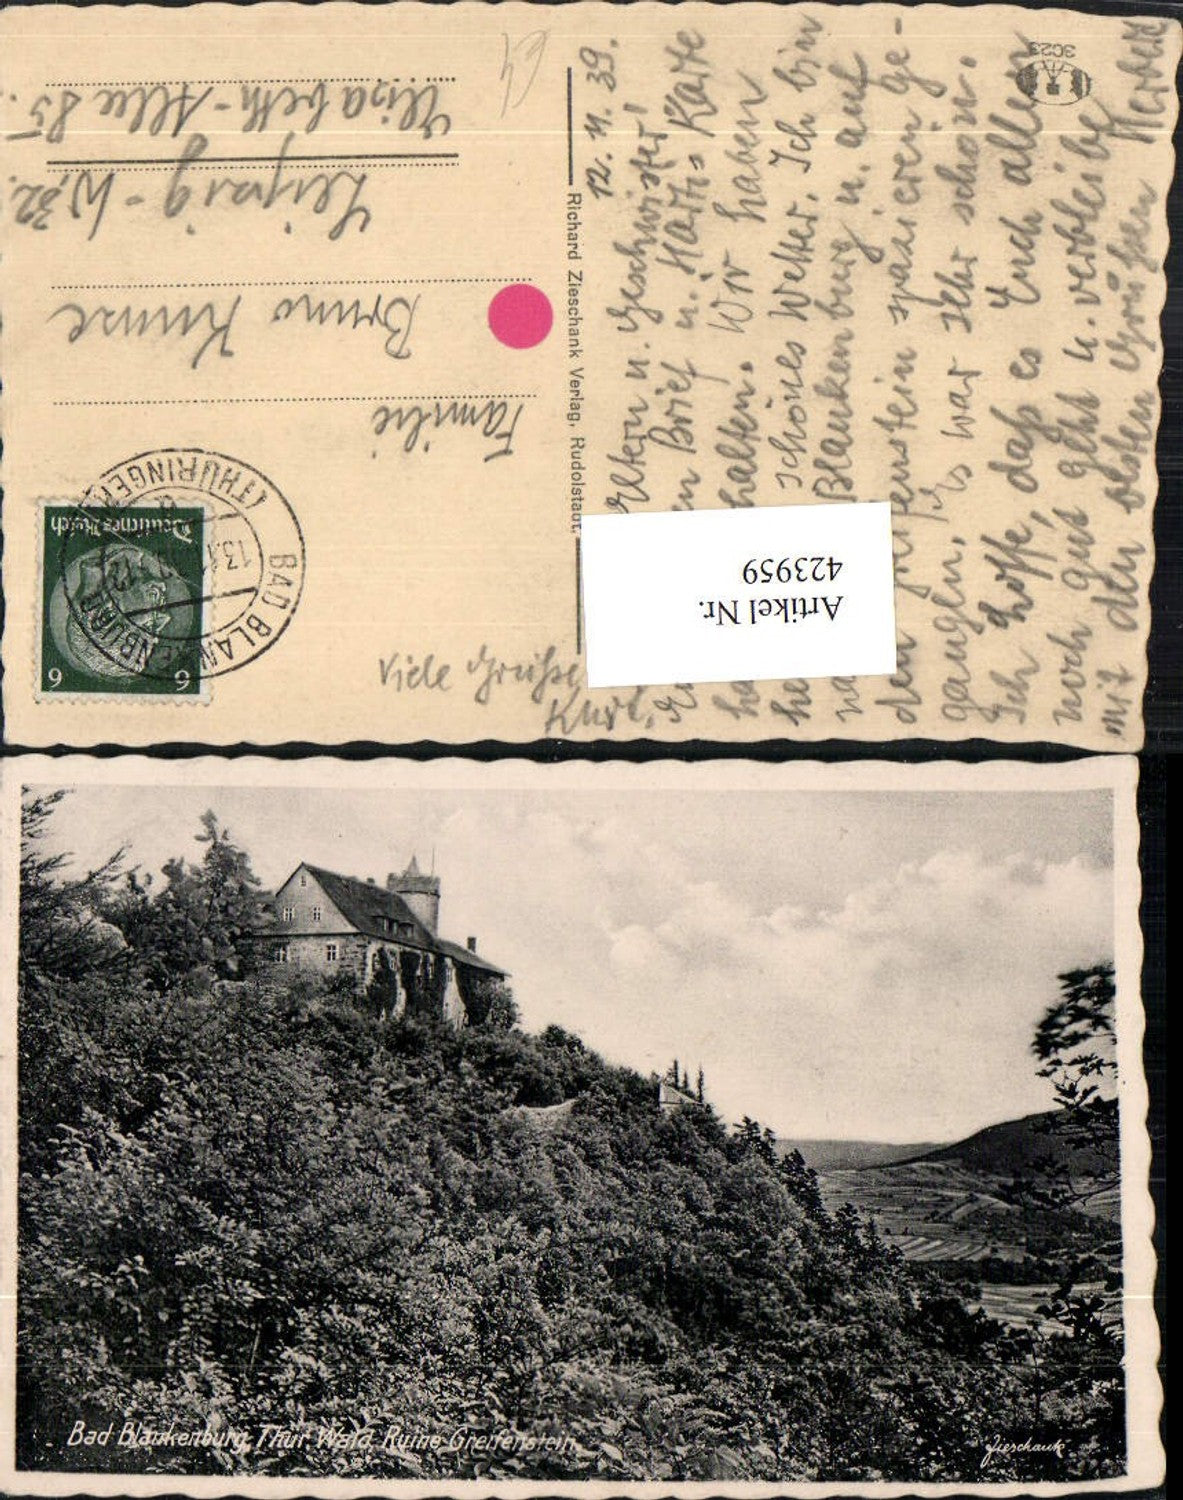 12. 11. 39.
Eltern u. Geschwister!
en Brief u. Hartz-Karte
halten. Wir haben
he schönes Wetter. Ich bin
na Blankenburg u. auf
dem Greifenstein spazieren ge-
gangen. Es war sehr schön.
Ich hoffe, daß es Euch allen
noch gut geht u. verbleibe
mit den besten Grüßen Herbert
Viele Grüße
Kurt.
Familie
Bruno Kunze
Leipzig-W, 32.
Elisabeth-Allee 85
Richard Zieschank Verlag, Rudolstadt.
3C23
Deutsches Reich
6 6
BAD BLANKENBURG
(THÜRINGER
Artikel Nr.
423959
Bad Blankenburg, Thür. Wald. Ruine Greifenstein.
Zieschank